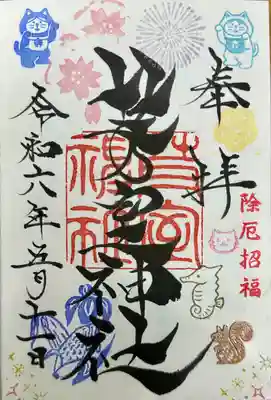 奉拝
除厄招福
神社
神社
令和六年五月十一日